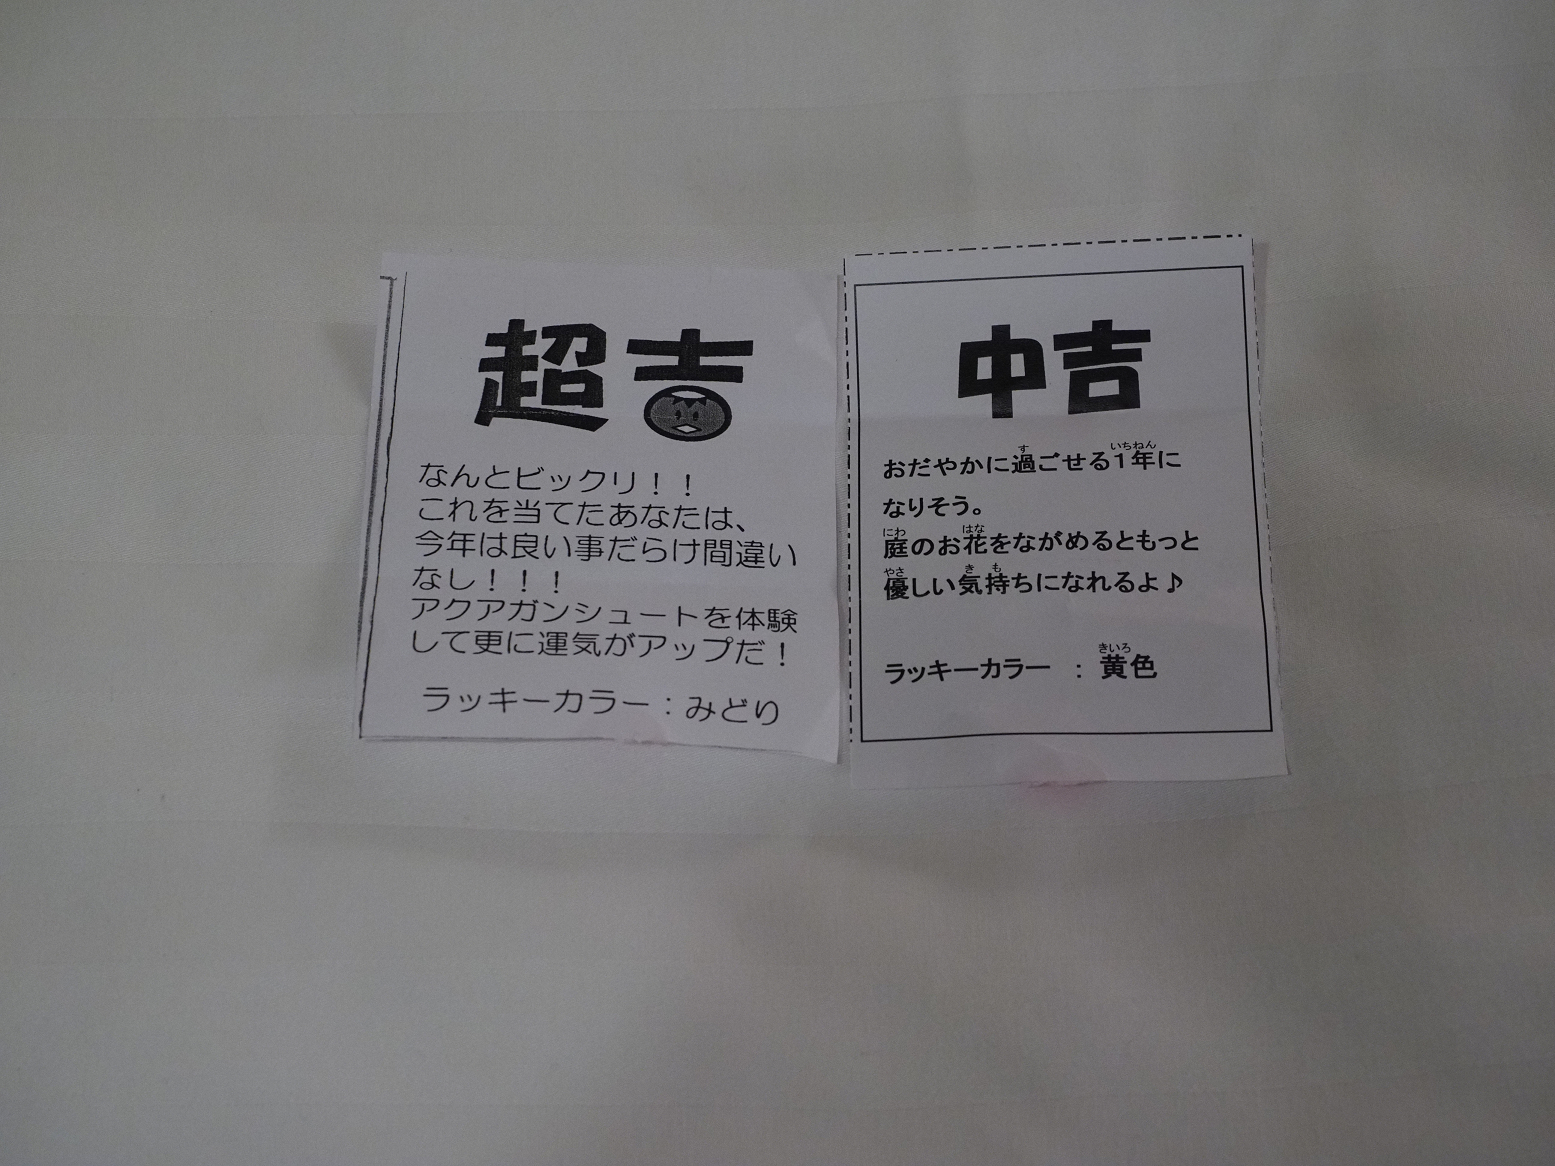 超吉
なんとビックリ！！
これを当てたあなたは、
今年は良い事だらけ間違い
なし！！！
アクアガンシュートを体験
して更に運気がアップだ！
ラッキーカラー：みどり
中吉
おだやかに過ごせる１年に
なりそう。
庭のお花をながめるともっと
優しい気持ちになれるよ♪
ラッキーカラー ： 黄色